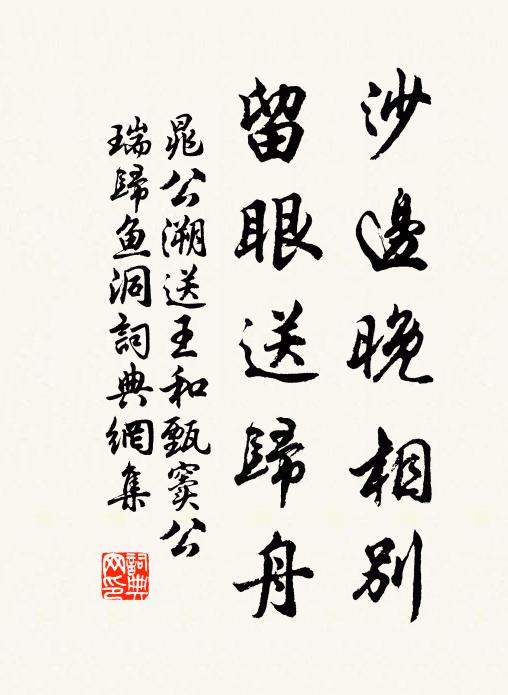 沙邊晚相別
留眼送歸舟
晁公溯送王和甄竇公
瑞歸魚洞詞典網集
詞典網印